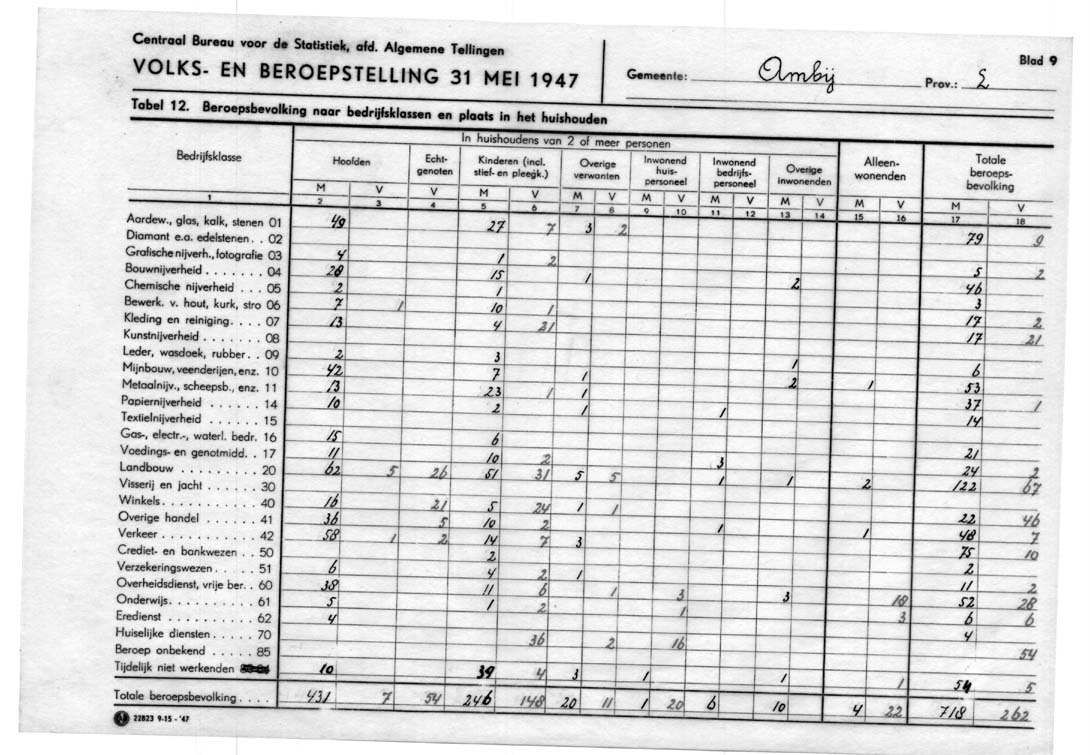 Centraal Bureau voor de Statistiek, afd. Algemene Tellingen
VOLKS- EN BEROEPSTELLING 31 MEI 1947
Gemeente: Ambij Prov.: L
Blad 9
Tabel 12. Beroepsbevolking naar bedrijfsklassen en plaats in het huishouden
In huishoudens van 2 of meer personen
Bedrijfsklasse Hoofden Echt-genoten Kinderen (incl. stief- en pleegk.) Overige verwanten Inwonend huis-personeel Inwonend bedrijfs-personeel Overige inwonenden Alleen-wonenden Totale beroeps-bevolking
M V V M V M V M V M V M V M V M V
1 2 3 4 5 6 7 8 9 10 11 12 13 14 15 16 17 18
Aardew., glas, kalk, stenen 01 49 27 7 3 2 79 9
Diamant e.a. edelstenen . . 02
Grafische nijverh., fotografie 03 4 1 2 5 2
Bouwnijverheid . . . . . . . 04 28 15 1 2 46
Chemische nijverheid . . . 05 2 1 3
Bewerk. v. hout, kurk, stro 06 7 1 10 1 17 2
Kleding en reiniging. . . . 07 13 4 21 17 21
Kunstnijverheid . . . . . . . 08
Leder, wasdoek, rubber. . 09 2 3 1 6
Mijnbouw, veenderijen, enz. 10 42 7 1 2 1 53
Metaalnijv., scheepsb., enz. 11 13 23 1 1 37 1
Papiernijverheid . . . . . . 14 10 2 1 1 14
Textielnijverheid . . . . . . 15
Gas-, electr.-, waterl. bedr. 16 15 6 21
Voedings- en genotmidd. . 17 11 10 2 3 24 2
Landbouw . . . . . . . . . 20 62 5 26 51 31 5 5 1 1 2 122 67
Visserij en jacht . . . . . . 30
Winkels . . . . . . . . . . . 40 16 21 5 24 1 1 22 46
Overige handel . . . . . . 41 36 5 10 2 1 1 48 7
Verkeer . . . . . . . . . . . 42 58 1 2 14 7 3 75 10
Crediet- en bankwezen . . 50 2 2
Verzekeringswezen. . . . . 51 6 4 2 1 11 2
Overheidsdienst, vrije ber. . 60 38 11 6 1 3 3 18 52 28
Onderwijs. . . . . . . . . . . 61 5 1 2 1 3 6 6
Eredienst . . . . . . . . . . . 62 4 4
Huiselijke diensten . . . . . 70 36 2 16 54
Beroep onbekend . . . . . 85
Tijdelijk niet werkenden 10 39 4 3 1 1 1 54 5
Totale beroepsbevolking . . . . 431 7 54 246 148 20 11 1 20 6 10 4 22 718 262
22823 9-15-'47